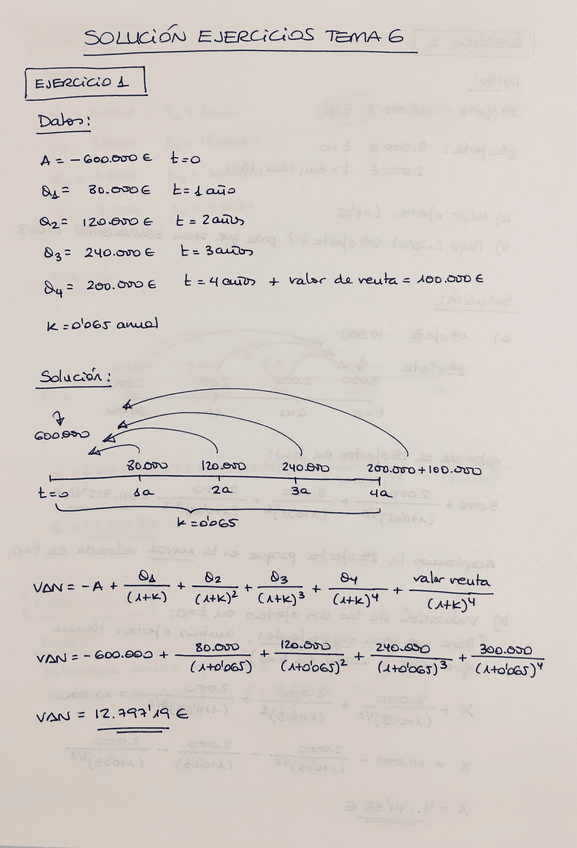 SOLUCIÓN EJERCICIOS TEMA 6
EJERCICIO 1
Datos:
A = -600.000 € t=0
Q1 = 80.000 € t = 1 año
Q2 = 120.000 € t = 2 años
Q3 = 240.000 € t = 3 años
Q4 = 200.000 € t = 4 años + valor de venta = 100.000 €
k = 0'065 anual
Solución:
600.000
80.000 120.000 240.000 200.000 + 100.000
t=0 1a 2a 3a 4a
k = 0'065
VAN = -A + Q1/(1+k) + Q2/(1+k)^2 + Q3/(1+k)^3 + Q4/(1+k)^4 + valor venta/(1+k)^4
VAN = -600.000 + 80.000/(1+0'065) + 120.000/(1+0'065)^2 + 240.000/(1+0'065)^3 + 300.000/(1+0'065)^4
VAN = 12.797'19 €